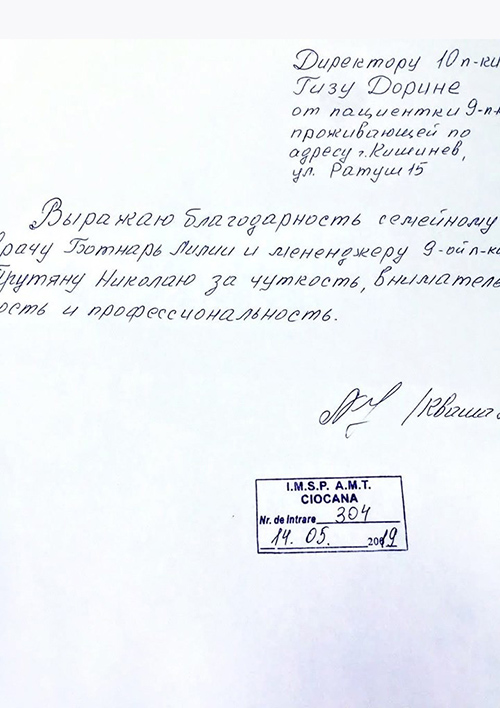 Директору 10 п-ки
Гизу Дорине
от пациентки 9-п-к
проживающей по
адресу г. Кишинев,
ул. Ратуш 15
Выражаю благодарность семейному
врачу Ботнарь Лилии и мененджеру 9-ой п-ки
Прутяну Николаю за чуткость, вниматель
ность и профессиональность.
/Кваша
I.M.S.P. A.M.T.
CIOCANA
Nr. de intrare 304
14. 05. 2019